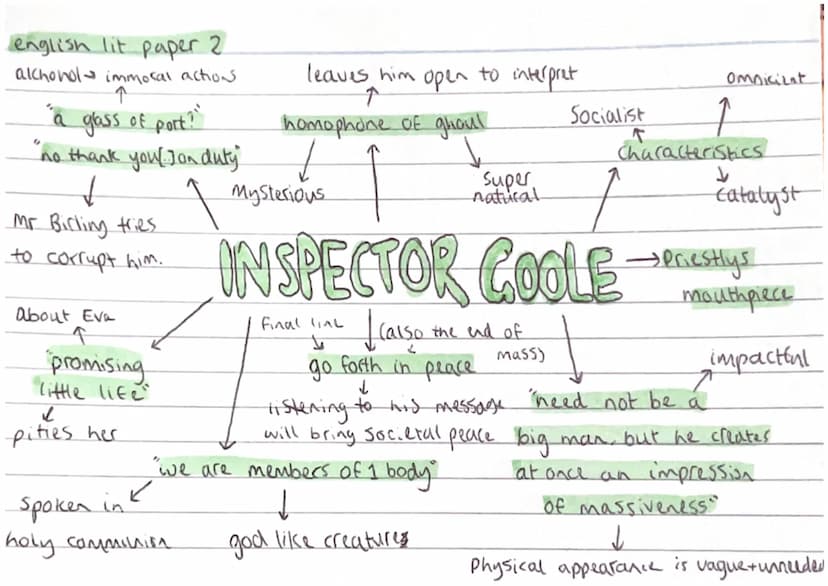 english lit paper 2
alchohol → immoral actions
"a glass of port?"
"no thank you[.] on duty"
Mr Birling tries
to corrupt him.
leaves him open to interpret
homophone of ghoul
Mysterious
super
natural
Socialist
omnicient
characteristics
catalyst
INSPECTOR GOOLE
→ Priestlys
mouthpiece
About Eva
"promising
little life"
pities her
final line
(also the end of
mass)
go forth in peace
listening to his message
will bring societal peace
impactful
"need not be a
big man, but he creates
at once an impression
of massiveness"
Physical appearance is vague + unneeded
"we are members of 1 body"
spoken in
holy communion
god like creature